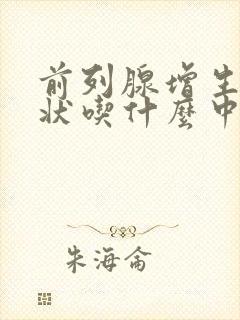 前列腺增生
状喫什麽中
朱海侖